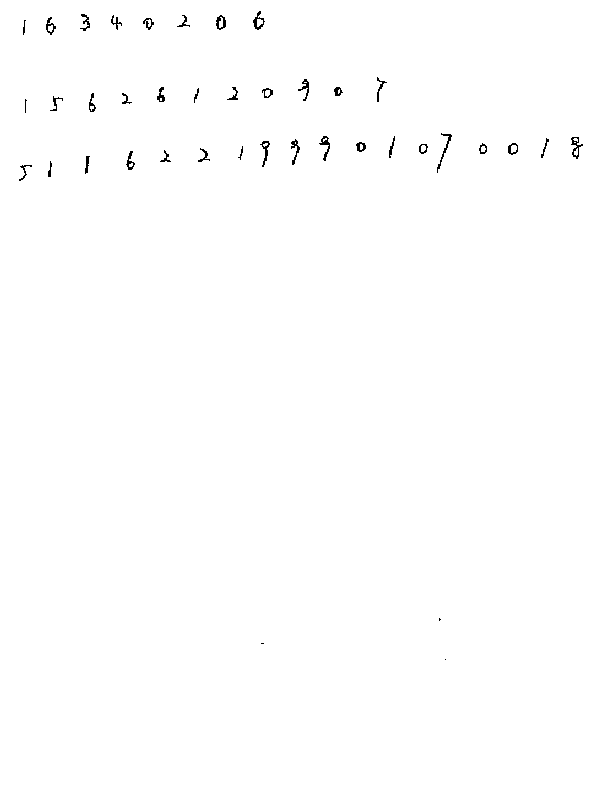 16340206
15626120907
511622199901070018